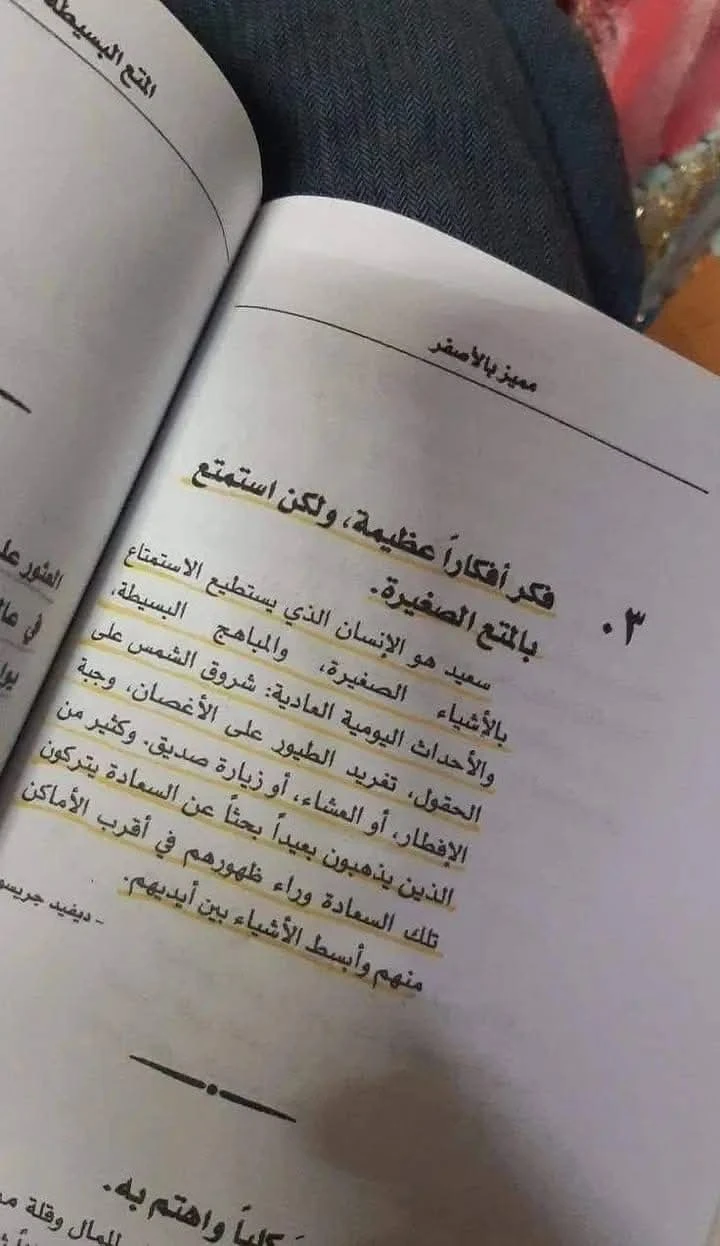 المتع البسيطة
العثور
في
مميز بالأصفر
٠٣
فكر أفكاراً عظيمة، ولكن استمتع
بالمتع الصغيرة.
سعيد هو الإنسان الذي يستطيع الاستمتاع
بالأشياء الصغيرة، والمباهج البسيطة،
والأحداث اليومية العادية: شروق الشمس على
الحقول، تغريد الطيور على الأغصان، وجبة
الإفطار، أو العشاء، أو زيارة صديق. وكثير من
الذين يذهبون بعيداً بحثاً عن السعادة يتركون
تلك السعادة وراء ظهورهم في أقرب الأماكن
منهم وأبسط الأشياء بين أيديهم.
- ديفيد
كلباً واهتم به.
للمال وقلة